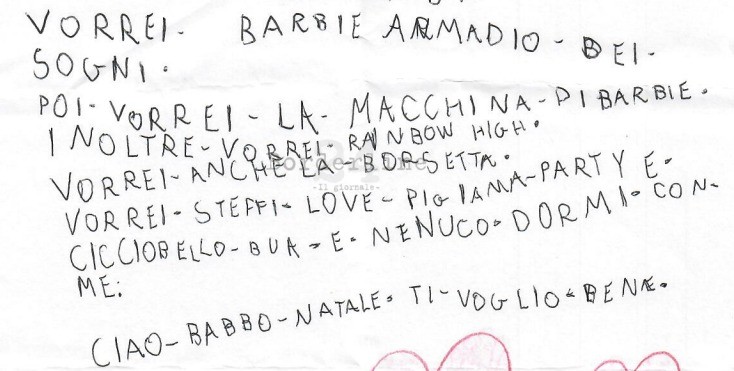 VORREI. BARBIE ARMADIO - DEI.
SOGNI.
POI. VORREI - LA - MACCHINA - DI BARBIE.
INOLTRE - VORREI - RAINBOW HIGH.
VORREI - ANCHE LA - BORSETTA.
VORREI - STEFFI - LOVE - PIGIAMA - PARTY E -
CICCIOBELLO - BUA - E - NENUCO - DORMI - CON -
ME:
CIAO - BABBO - NATALE. TI - VOGLIO - BENE.
-Il giornale-